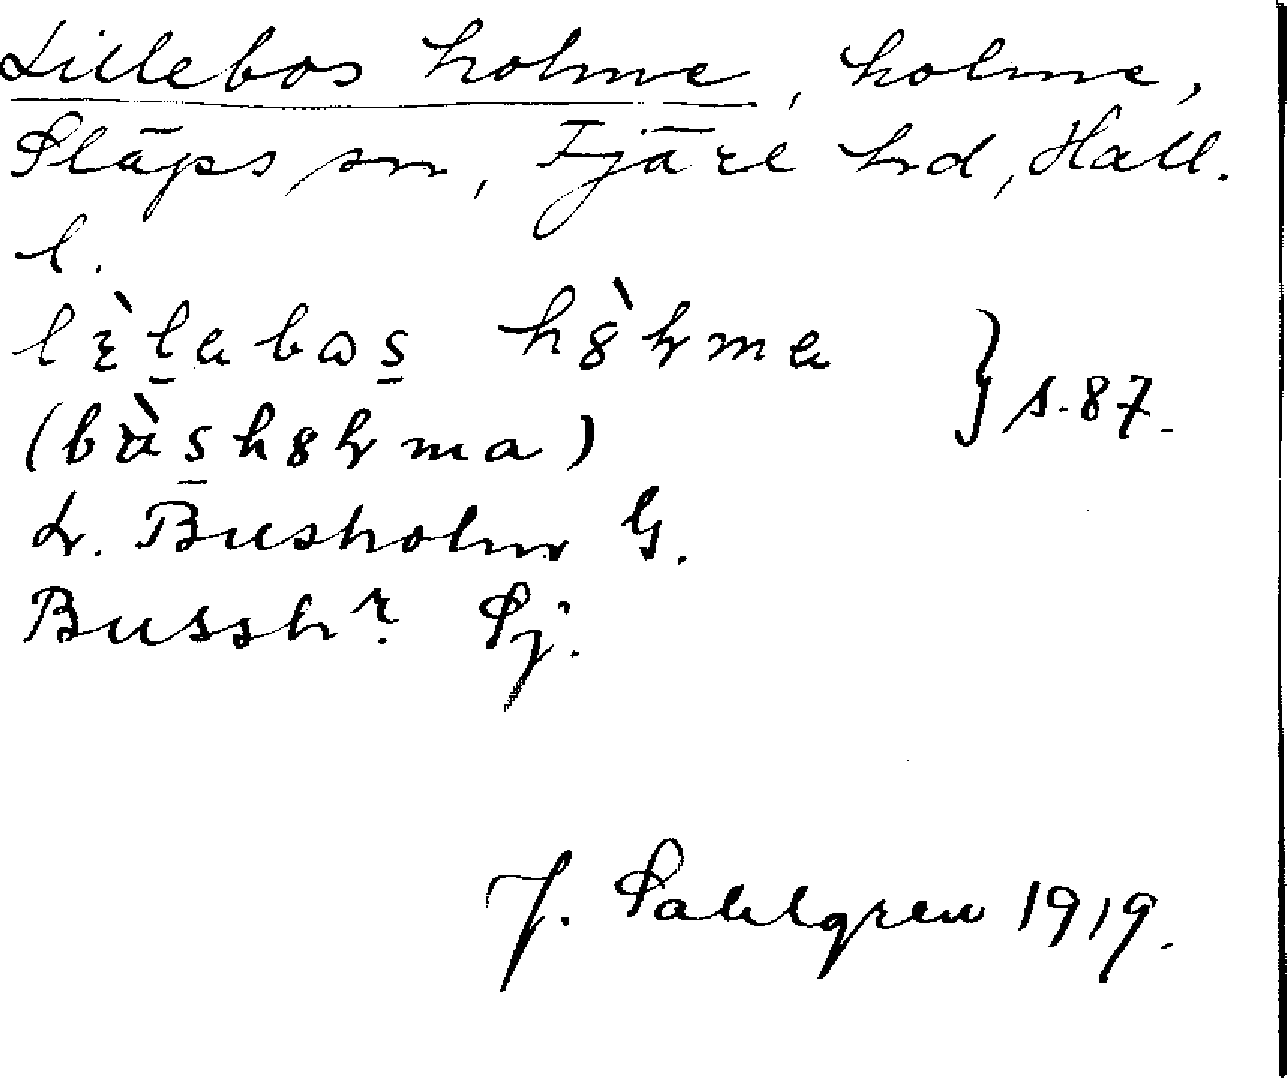 Lillebos holme, holme,
Släps sn, Fjäre hd, Hall.
l.
s. 87.
L. Busholm G.
Bussh? Sj.
J. Sahlgren 1919.